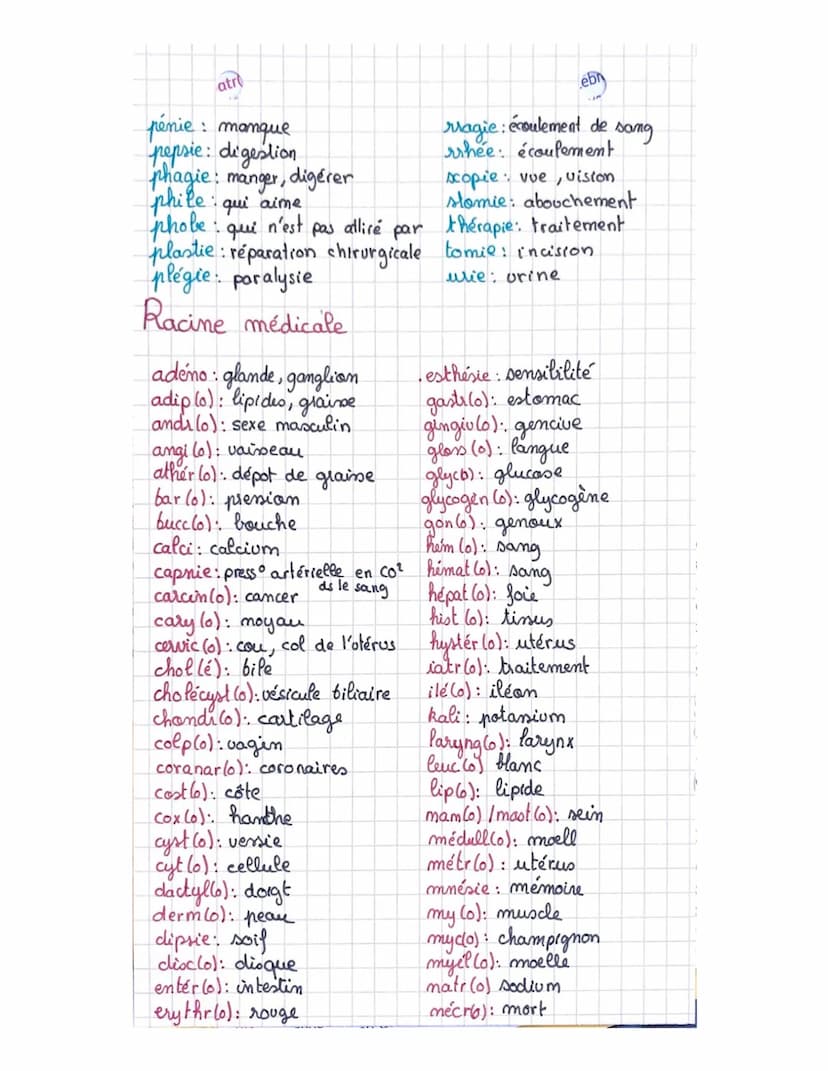 atr
ebn
pénie : manque
pepsie : digestion
phagie : manger, digérer
phile : qui aime
phobe : qui n'est pas attiré par
plastie : réparation chirurgicale
plégie : paralysie
rragie : écoulement de sang
rrhée : écoulement
scopie : vue, vision
stomie : abouchement
thérapie : traitement
tomie : incision
urie : urine
Racine médicale
adéno : glande, ganglion
adip(o) : lipides, graisse
andr(o) : sexe masculin
angi(o) : vaisseau
athér(o) : dépot de graisse
bar(o) : pression
bucc(o) : bouche
calci : calcium
capnie : press° artérielle en CO²
ds le sang
carcin(o) : cancer
cary(o) : noyau
cervic(o) : cou, col de l'utérus
chol(é) : bile
cholécyst(o) : vésicule biliaire
chondr(o) : cartilage
colp(o) : vagin
coronar(o) : coronaires
cost(o) : côte
cox(o) : hanche
cyst(o) : vessie
cyt(o) : cellule
dactyl(o) : doigt
derm(o) : peau
dipsie : soif
disc(o) : disque
entér(o) : intestin
erythr(o) : rouge
. esthésie : sensibilité
gastr(o) : estomac
gingiv(o) : gencive
gloss(o) : langue
glyc(o) : glucose
glycogén(o) : glycogène
gon(o) : genoux
hém(o) : sang
hémat(o) : sang
hépat(o) : foie
hist(o) : tissus
hystér(o) : utérus
iatr(o) : traitement
ilé(o) : iléon
kali : potassium
laryng(o) : larynx
leuc(o) blanc
lip(o) : lipide
mam(o) / mast(o) : sein
médull(o) : moell
métr(o) : utérus
mnésie : mémoire
my(o) : muscle
myc(o) : champignon
myél(o) : moelle
natr(o) sodium
nécr(o) : mort